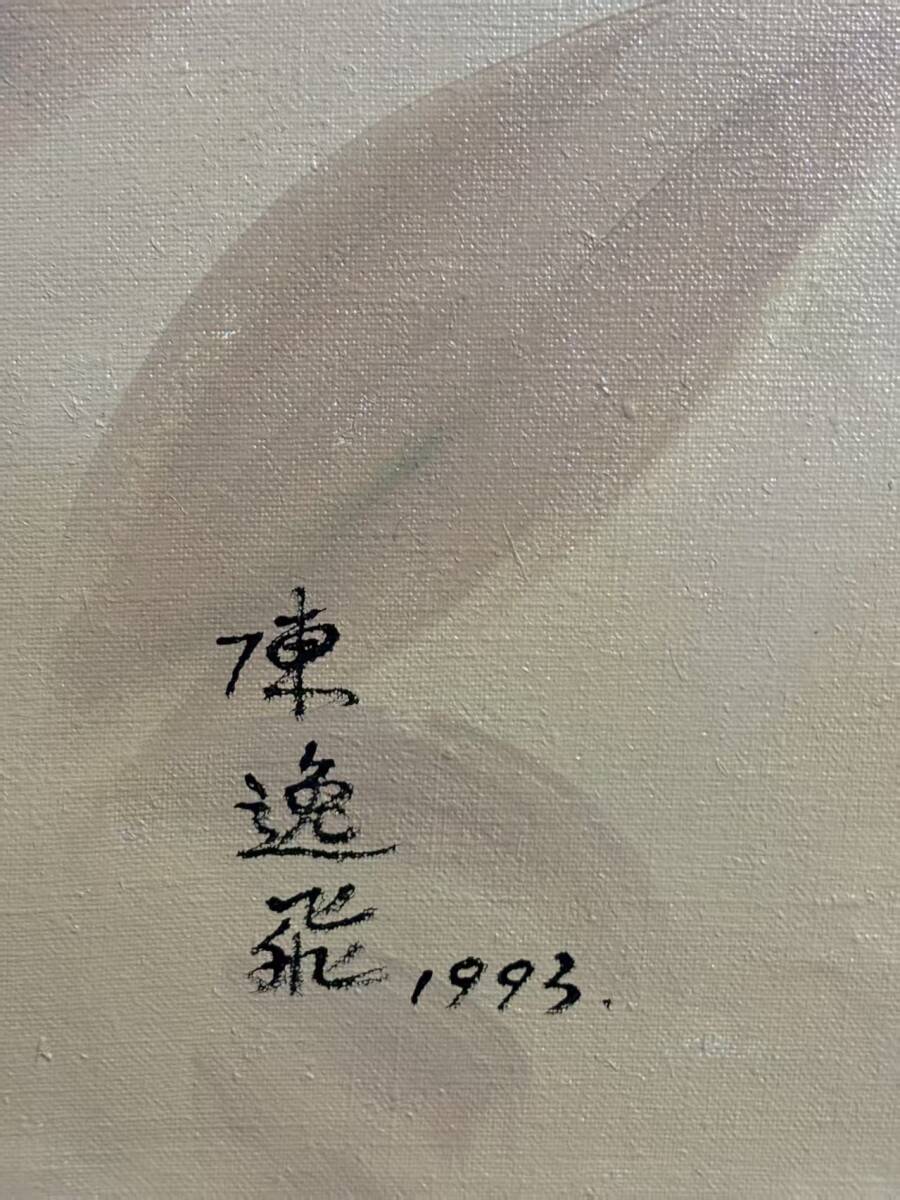 陳逸飛 1993.